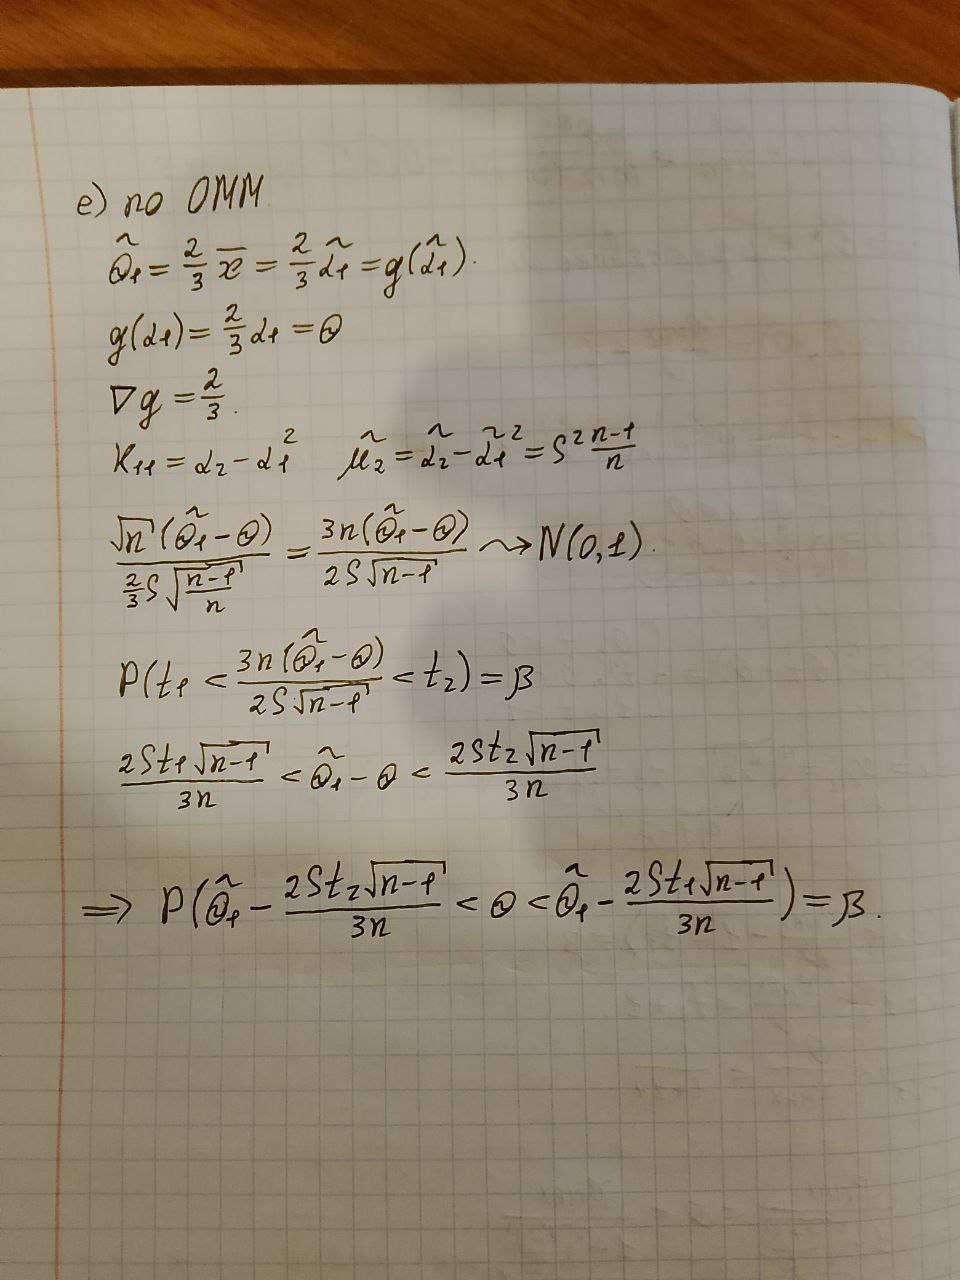 е) по ОММ
θ̃₁ = 2/3 x̄ = 2/3 α̃₁ = g(α̃₁).
g(α₁) = 2/3 α₁ = θ
∇g = 2/3.
K₁₁ = α₂ − α₁² μ̃₂ = α̃₂ − α̃₁² = S² (n−1)/n
√n (θ̃₁ − θ) / (2/3 S √((n−1)/n)) = 3n(θ̃₁ − θ) / (2S√(n−1)) ⇝ N(0,1).
P(t₁ < 3n(θ̃₁ − θ) / (2S√(n−1)) < t₂) = β
2St₁√(n−1) / 3n < θ̃₁ − θ < 2St₂√(n−1) / 3n
⇒ P(θ̃₁ − 2St₂√(n−1) / 3n < θ < θ̃₁ − 2St₁√(n−1) / 3n) = β.